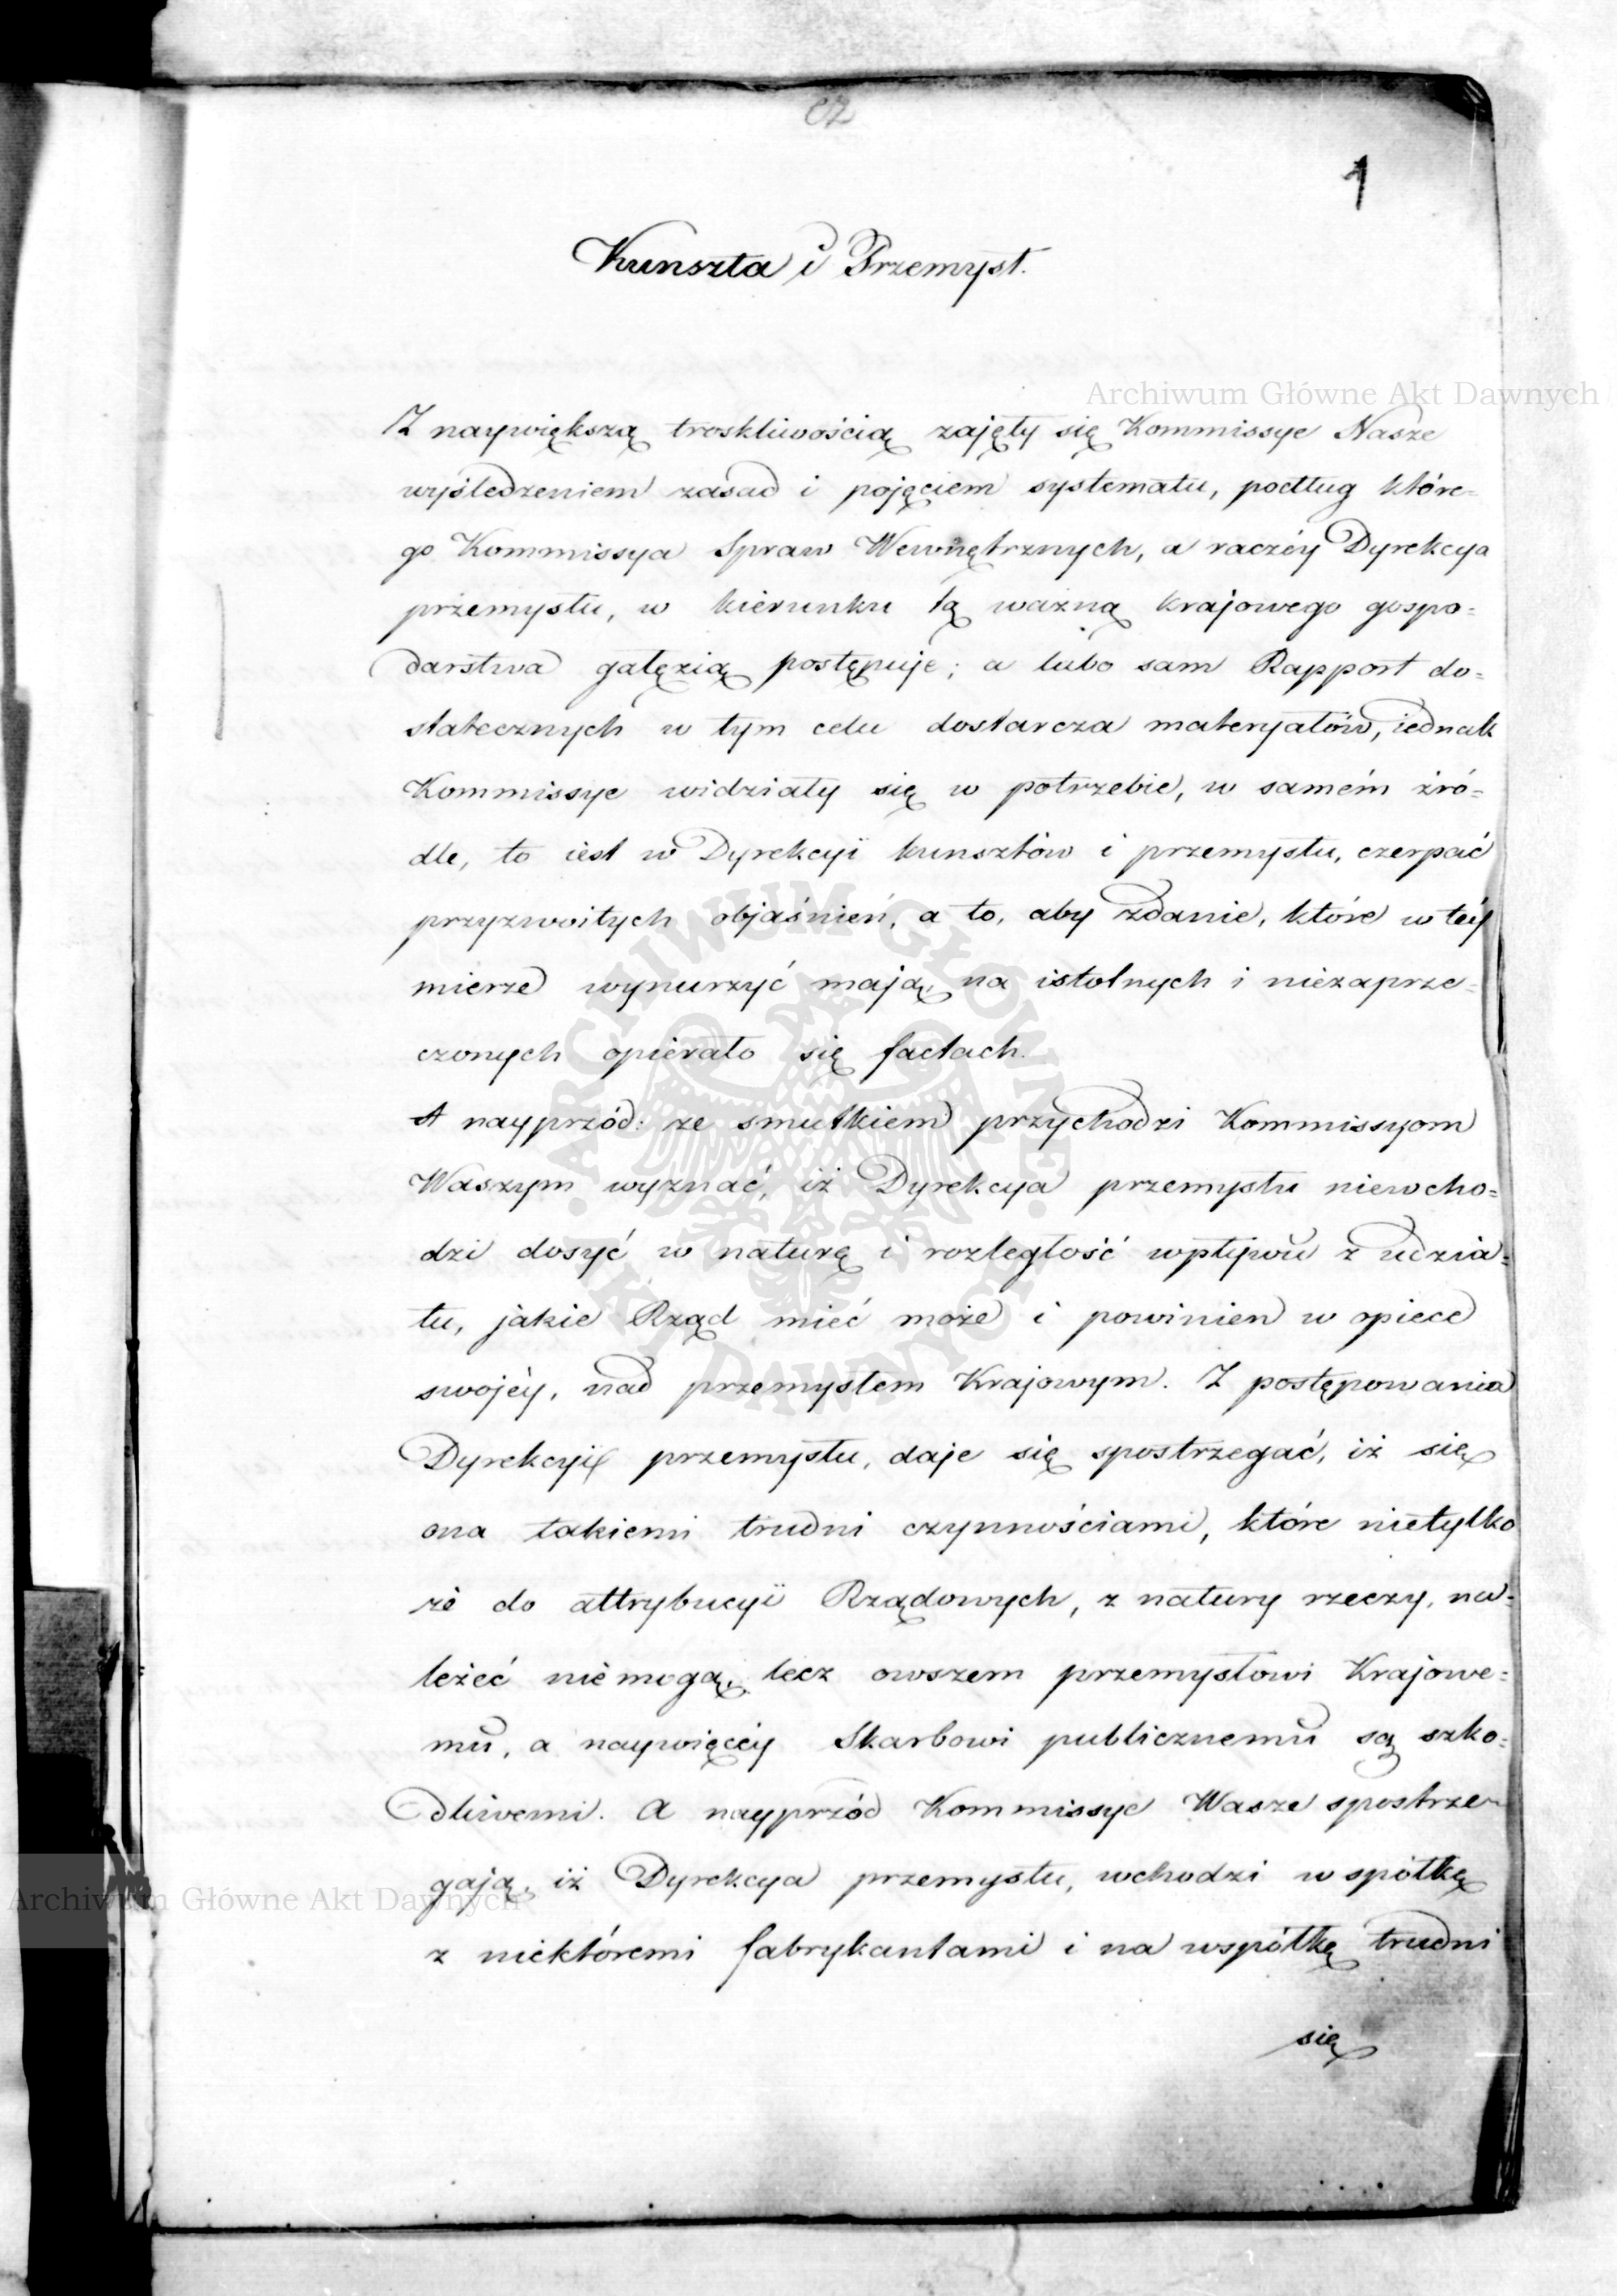 1
Kunszta i Przemysł.
Archiwum Główne Akt Dawnych
Z naywiększą troskliwością zajęły się Kommissye Nasze
wyśledzeniem zasad i pojęciem systematu, podług które=
go Kommissya Spraw Wewnętrznych, a raczéy Dyrekcya
przemysłu, w kierunku tą ważną krajowego gospo=
darstwa gałęzią postępuje; a lubo sam Rapport do=
statecznych w tym celu dostarcza materyałów, iednak
Kommissye widziały się w potrzebie, w samém źró=
dle, to iest w Dyrekcyi kunsztów i przemysłu, czerpać
przyzwoitych objaśnień, a to, aby zdanie, które w téy
mierze wynurzyć mają, na istotnych i niezaprze=
czonych opierało się factach.
A nayprzód: ze smutkiem przychodzi Kommissyom
Waszym wyznać, iż Dyrekcya przemysłu niewcho=
dzi dosyć w naturę i rozległość wpływu z udzia=
łu, jakie Rząd mieć może i powinien w opiece
swojéy, nad przemysłem Krajowym. Z postępowania
Dyrekcyi przemysłu, daje się spostrzegać, iż się
ona takiemi trudni czynnościami, które nietylko
że do attrybucyi Rządowych, z natury rzeczy, na=
leżeć nie mogą, lecz owszem przemysłowi Krajowe=
mu, a naywięcéy Skarbowi publicznemu są szko=
dliwemi. A nayprzód Kommissye Wasze spostrze=
gają, iż Dyrekcya przemysłu, wchodzi w spółkę
Archiwum Główne Akt Dawnych
z niektóremi fabrykantami i na wspólkę trudni
się
ARCHIWUM GŁÓWNE AKT DAWNYCH